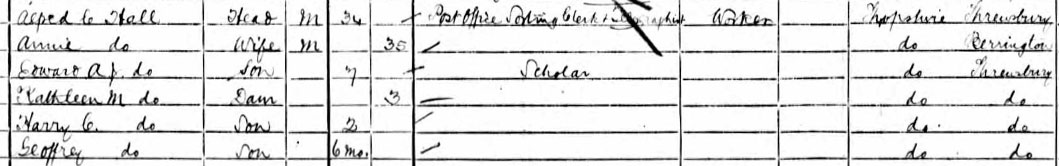 Alfred C Hall Head M 34 Post Office Sorting Clerk & Telegraphist Worker Shropshire Shrewsbury
Annie do Wife M 35 do Berrington
Edward A J. do Son 7 Scholar do Shrewsbury
Kathleen M do Daur 3 do do
Harry C. do Son 2 do. do
Geoffrey do Son 6 mo. do do